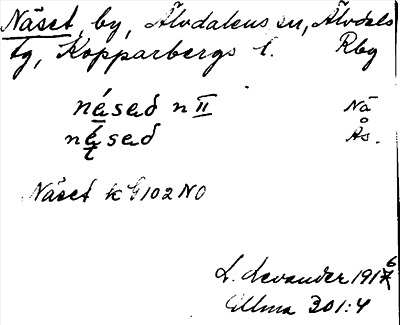 Näset, by, Älvdalens sn, Älvdals
tg, Kopparbergs l. Rby
nésad n II Nä
nésad Ås.
t
Näset k G102 NO
L. Levander 1916
Ullma 301:4